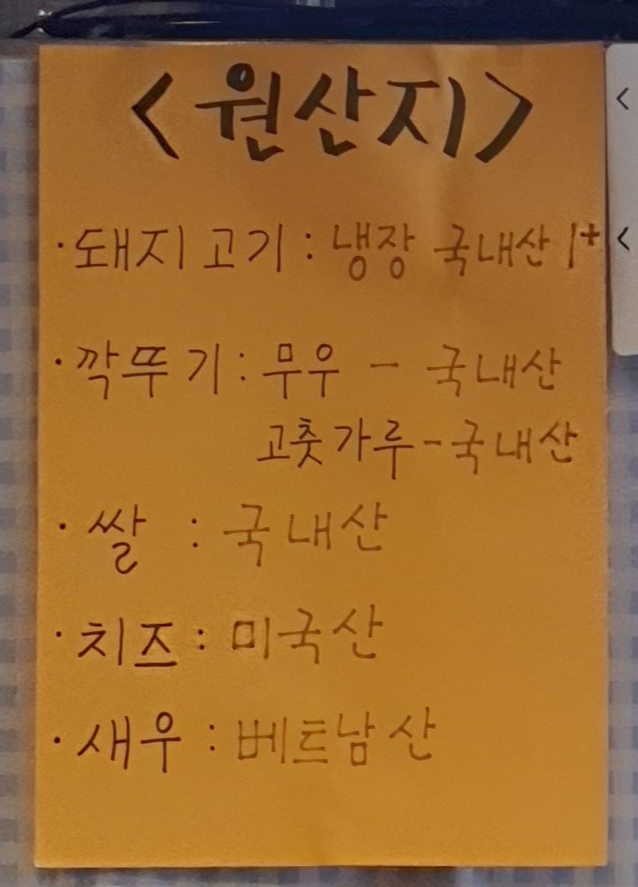 <원산지>
·돼지고기 : 냉장 국내산 1+
·깍뚜기 : 무우 - 국내산
고춧가루 - 국내산
·쌀 : 국내산
·치즈 : 미국산
·새우 : 베트남산